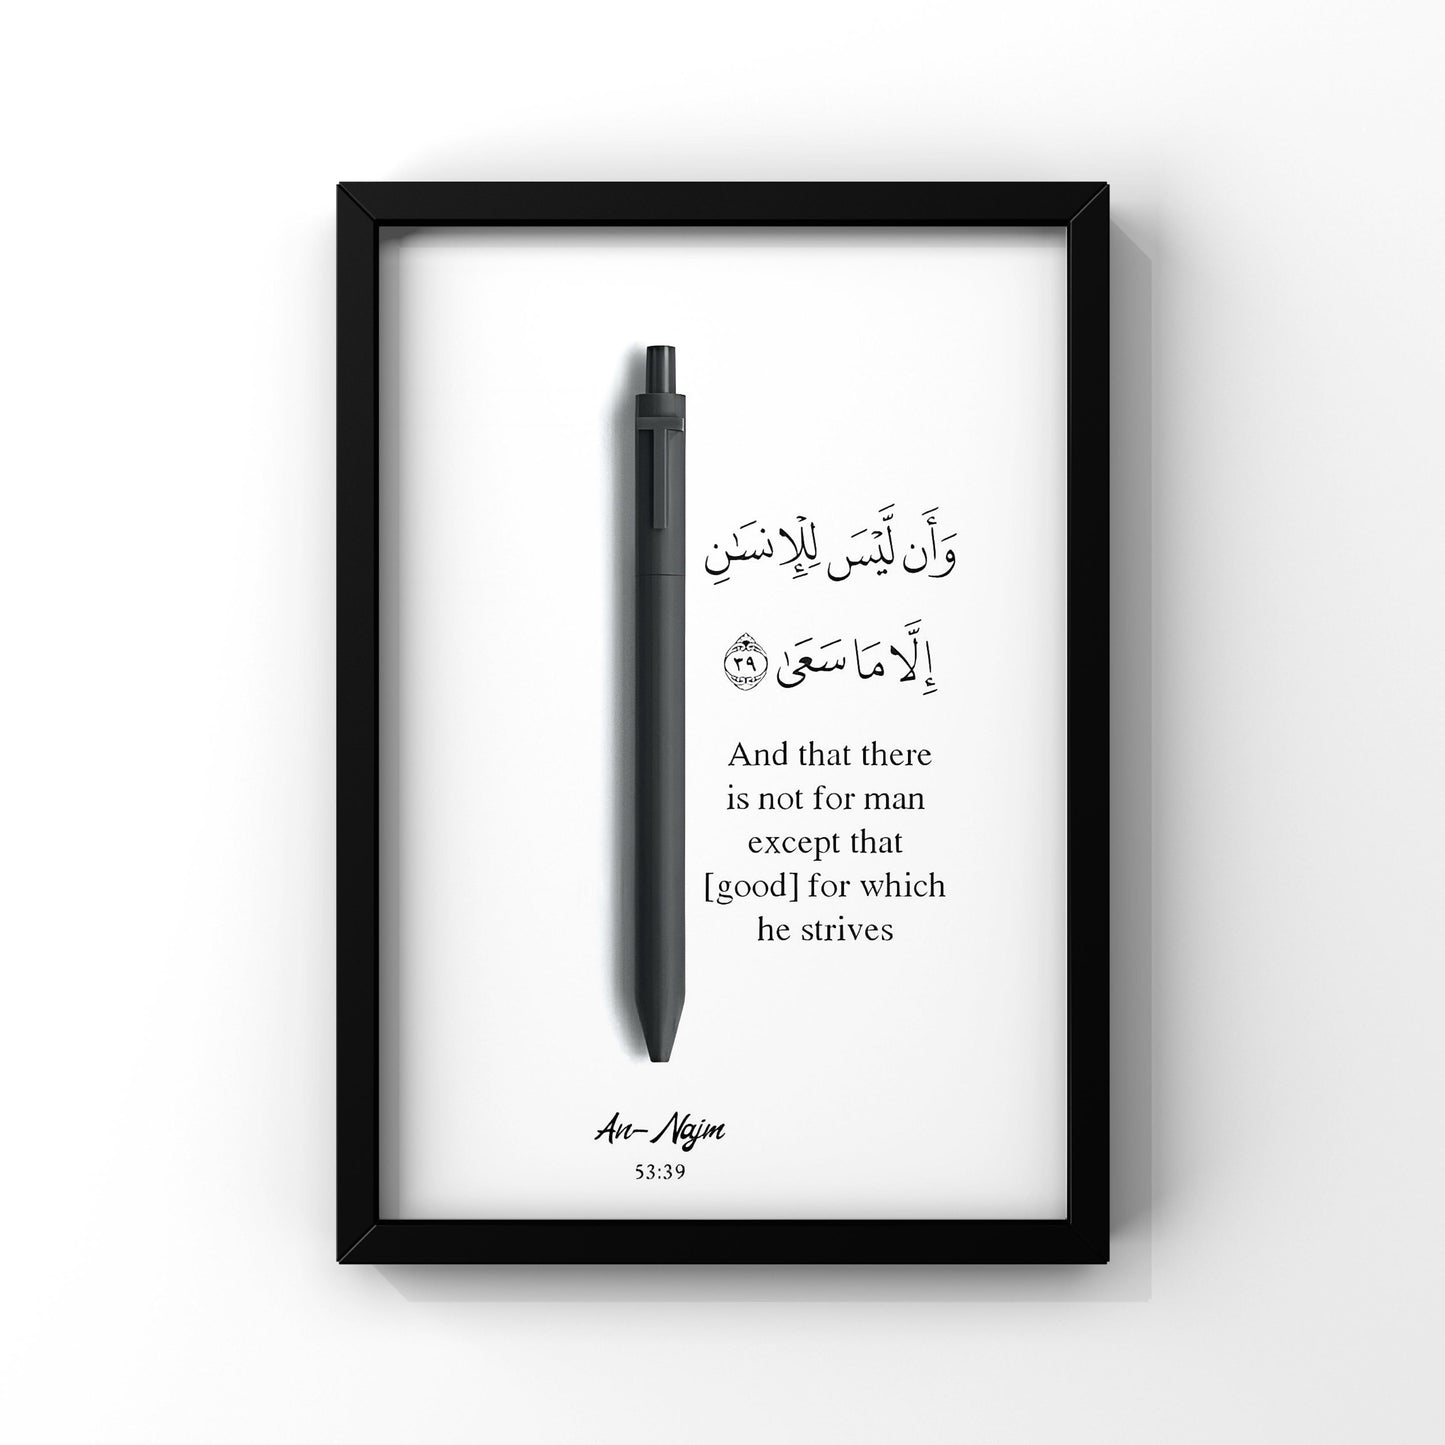 وَأَن لَّيْسَ لِلْإِنسَٰنِ
إِلَّا مَا سَعَىٰ ٣٩
And that there
is not for man
except that
[good] for which
he strives
An-Najm
53:39